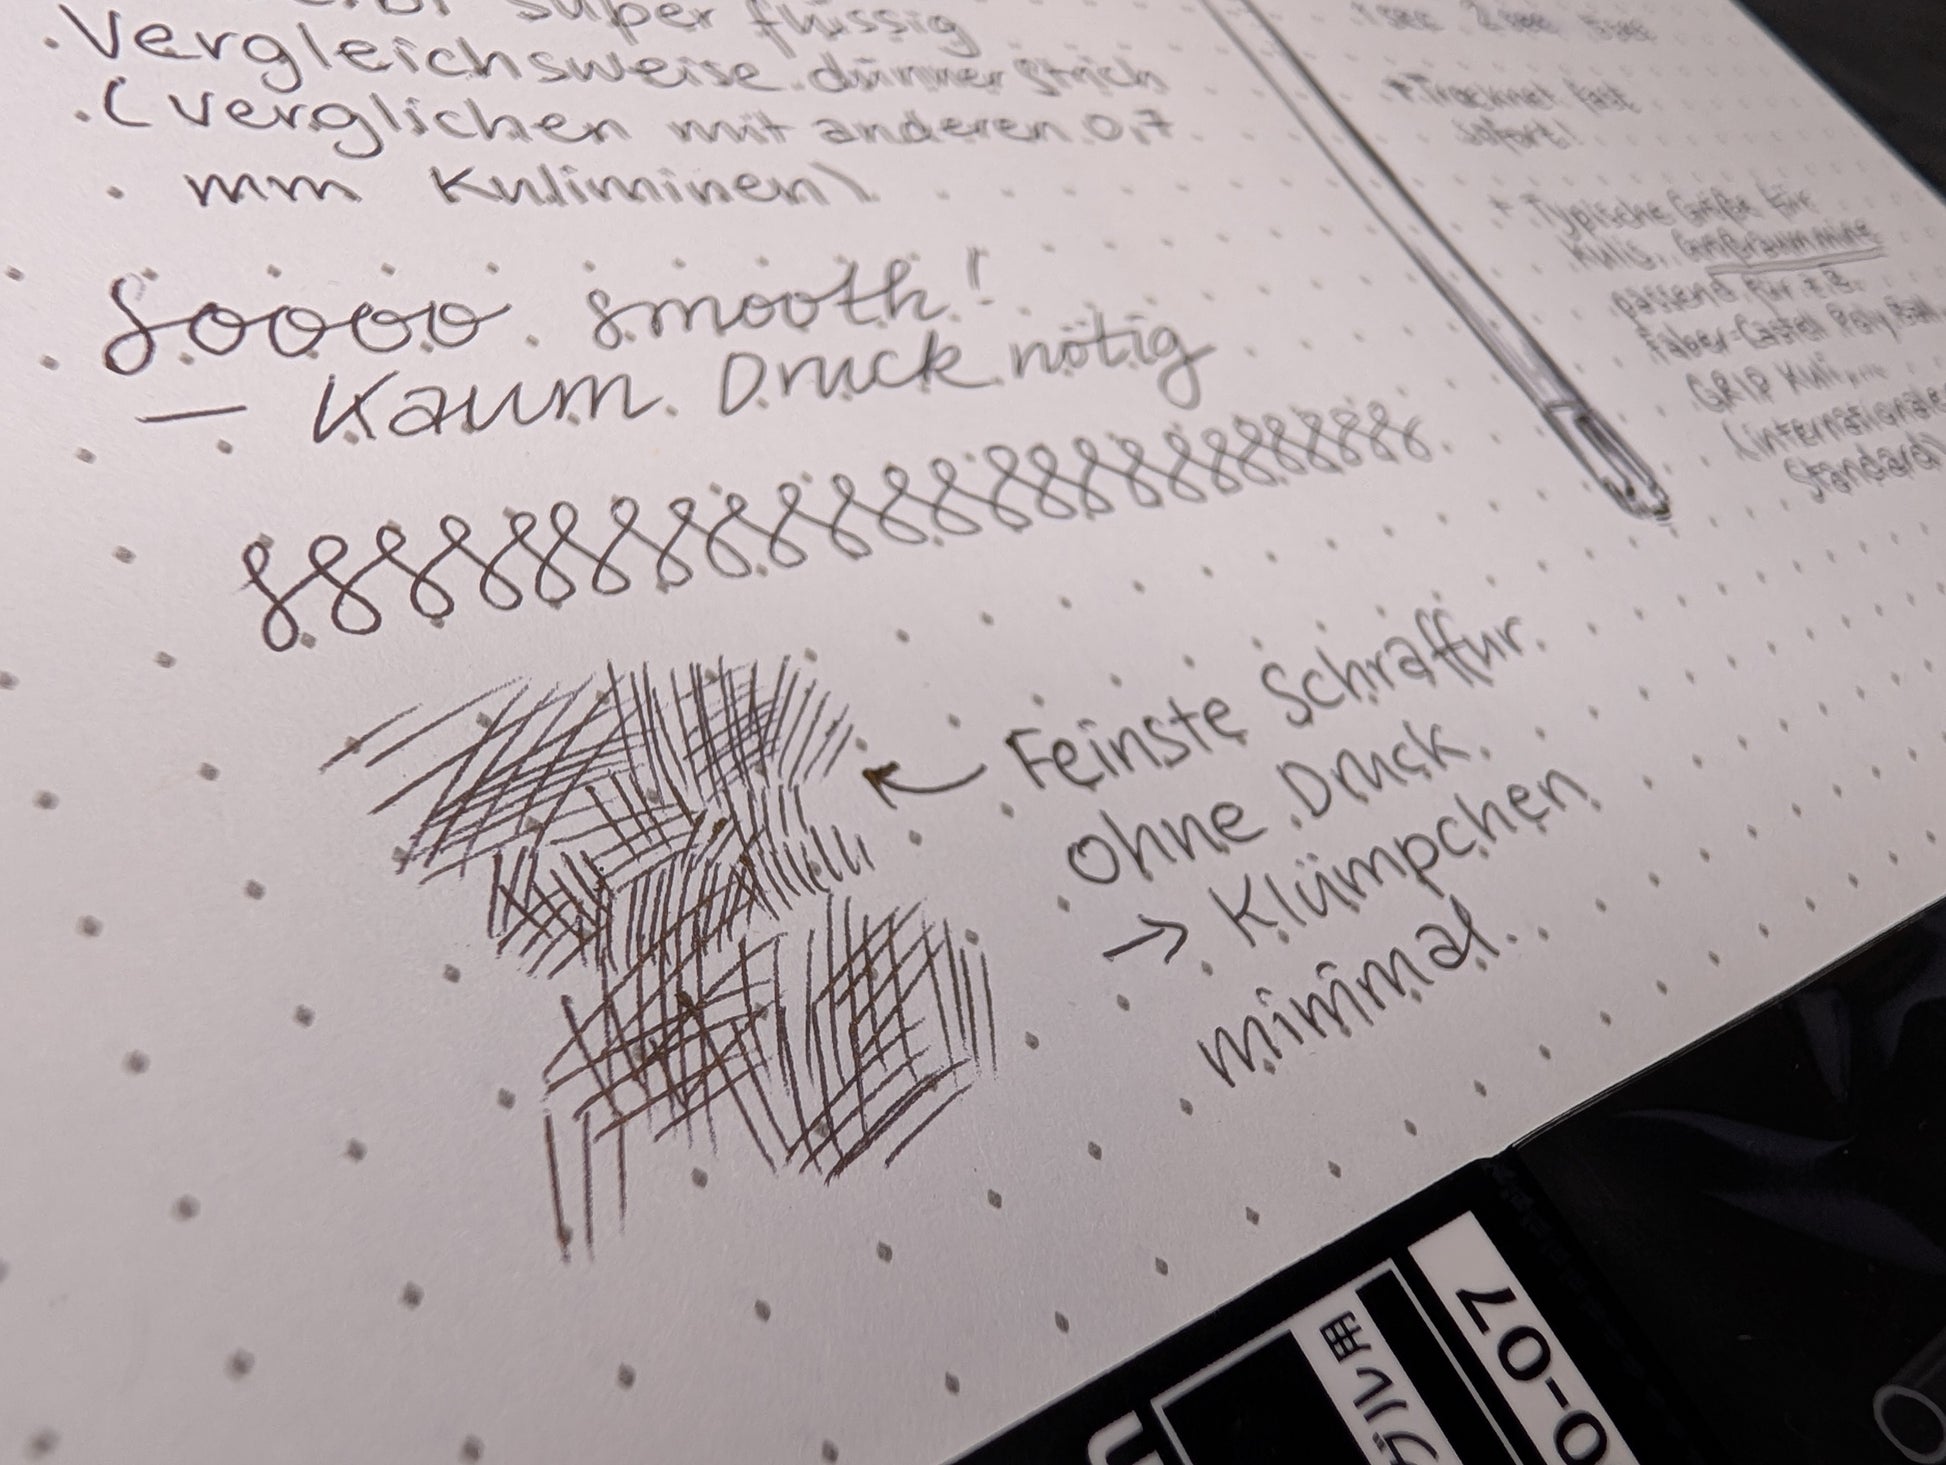 super flüssig
Vergleichsweise dünner Strich
(verglichen mit anderen 0,7
mm Kuliminen)
Soooo smooth!
— Kaum Druck nötig
← Feinste Schraffur
ohne Druck
→ Klümpchen
minimal.
1 sec 2 sec 5 sec
+ Trocknet fast
sofort!
+ Typische Größe für
Kulis, Großraummine
passend für z.B.
Faber-Castell Poly Ball,
GRIP Kuli,
(internationaler
Standard)
ブル用
0-07